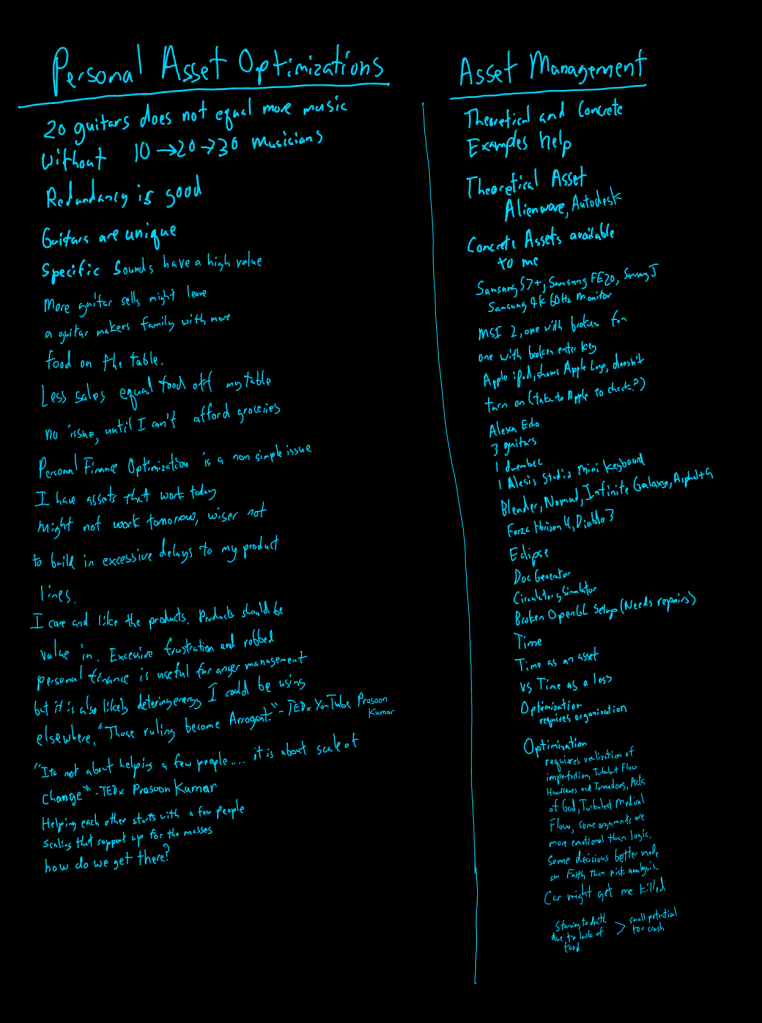 Personal Asset Optimizations
20 guitars does not equal more music
without 10→20→30 musicians
Redundancy is good
Guitars are unique
Specific Sounds have a high value
More guitar sells might leave
a guitar makers family with more
food on the table.
Less sales equal food off my table
no issue, until I can't afford groceries
Personal Finance Optimization is a non simple issue
I have assets that work today
might not work tomorrow, wiser not
to build in excessive delays to my product
lines.
I care and like the products. Products should be
value in. Excessive frustration and robbed
personal finance is useful for anger management
but it is also likely deterring energy I could be using
elsewhere. "Those ruling become Arrogant." - TEDx YouTube Prasoon
Kumar
"Its not about helping a few people.... it is about scale of
change" - TEDx Prasoon Kumar
Helping each other starts with a few people
scaling that support up for the masses
how do we get there?
Asset Management
Theoretical and Concrete
Examples help
Theoretical Asset
Alienware, Autodesk
Concrete Assets available
to me
Samsung S7+, Samsung FE20, Samsung J
Samsung 4K 60Hz Monitor
MSI 2, one with broken fan
one with broken enter key
Apple ipod, shows Apple Logo, doesn't
turn on (take to Apple to check?)
Alexa Echo
3 guitars
1 dumbec
1 Alesis Studio Mini Keyboard
Blender, Nomad, Infinite Galaxy, Asphalt 9
Forza Horizon 4, Diablo 3
Eclipse
Doc Generator
Circulatory Simulator
Broken OpenGL Setup (Needs repairs)
Time
Time as an asset
vs Time as a loss
Optimization
requires organization
Optimization
requires realization of
imperfection, Turbulent Flow
Hurricanes and Tornadoes, Acts
of God, Turbulent Medical
Flow, some arguments are
more emotional than logic.
Some decisions better made
on Faith than risk analysis.
Car might get me killed
Starving to death
due to lack of
food
> small potential
for crash